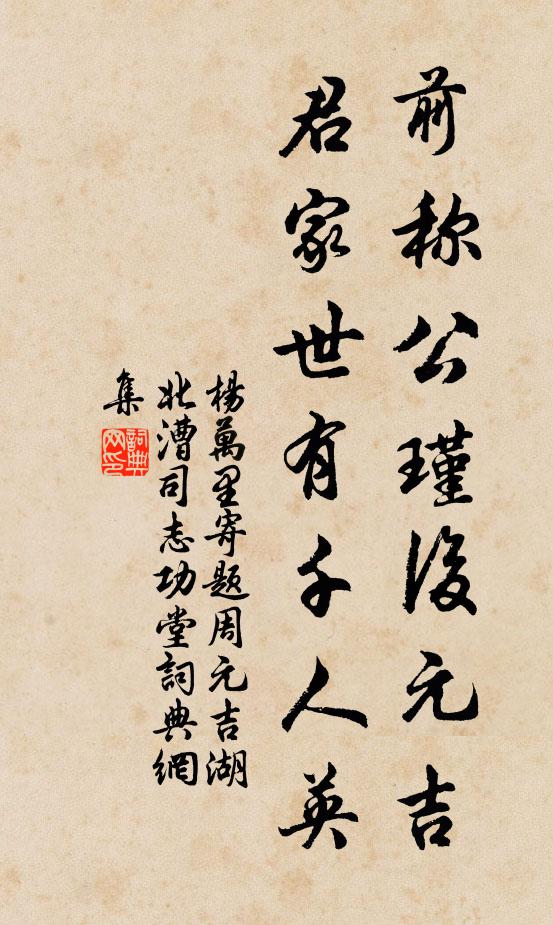 前称公瑾後元吉
君家世有千人英
楊萬里寄題周元吉湖
北漕司志功堂詞典網
集
詞典
网印